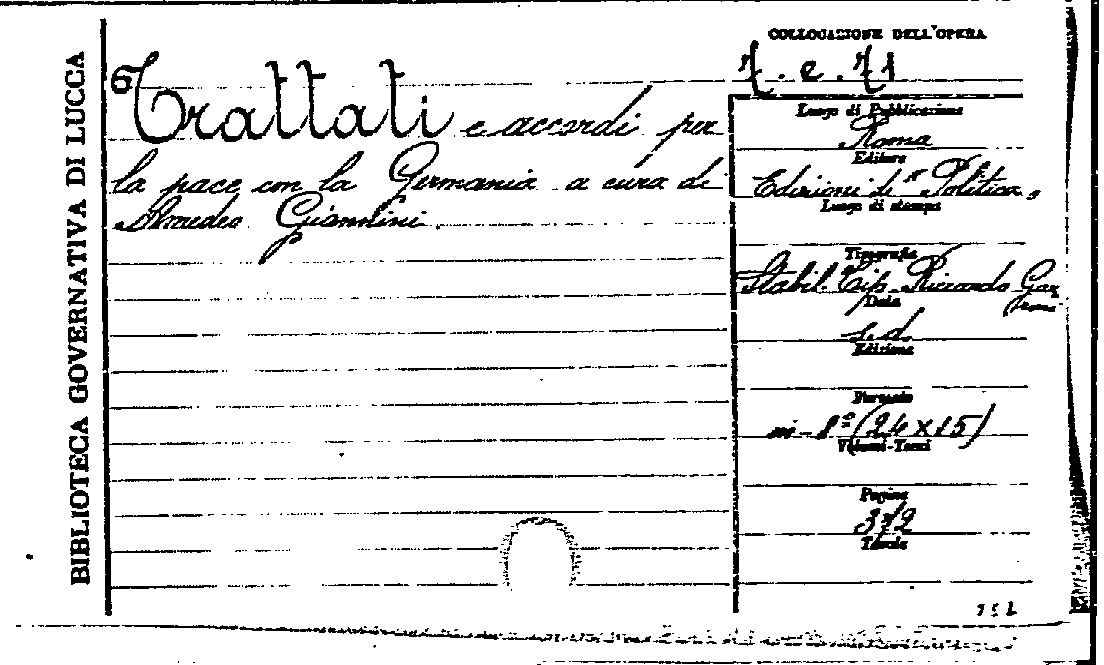 BIBLIOTECA GOVERNATIVA DI LUCCA
6
Trattati e accordi per
la pace con la Germania a cura di
Amedeo Giannini
COLLOCAZIONE DELL'OPERA
7. e. 71
Luogo di Pubblicazione
Roma
Editore
Edizioni di "Politica"
Luogo di stampa
Tipografia
Stabil. Tip. Riccardo Gar
roni
Data
s. d.
Edizione
Formato
in-8° (24x15)
Volumi-Tomi
Pagine
372
Tavole